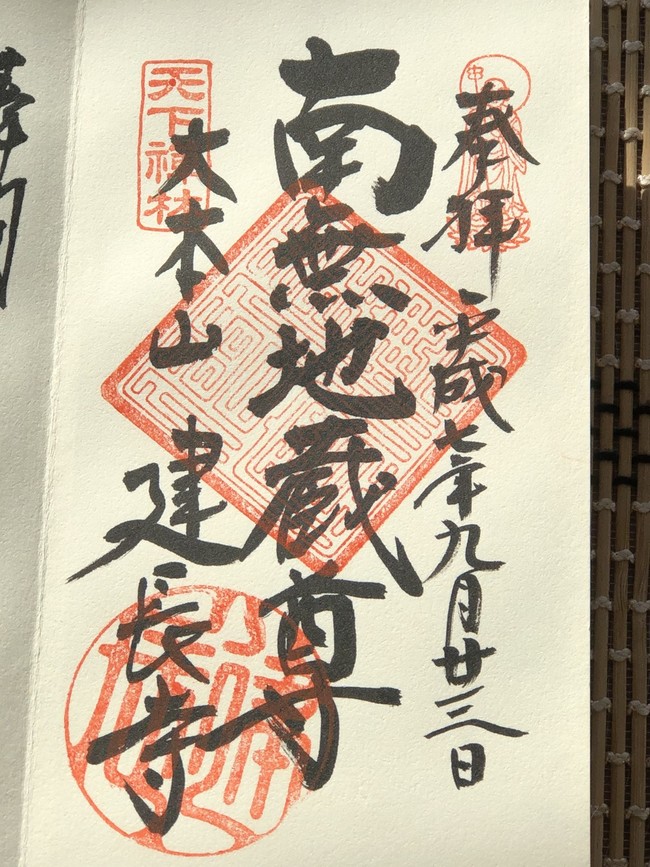 奉拝 平成七年九月廿三日
南無地蔵尊
天下禅林
大本山 建長寺